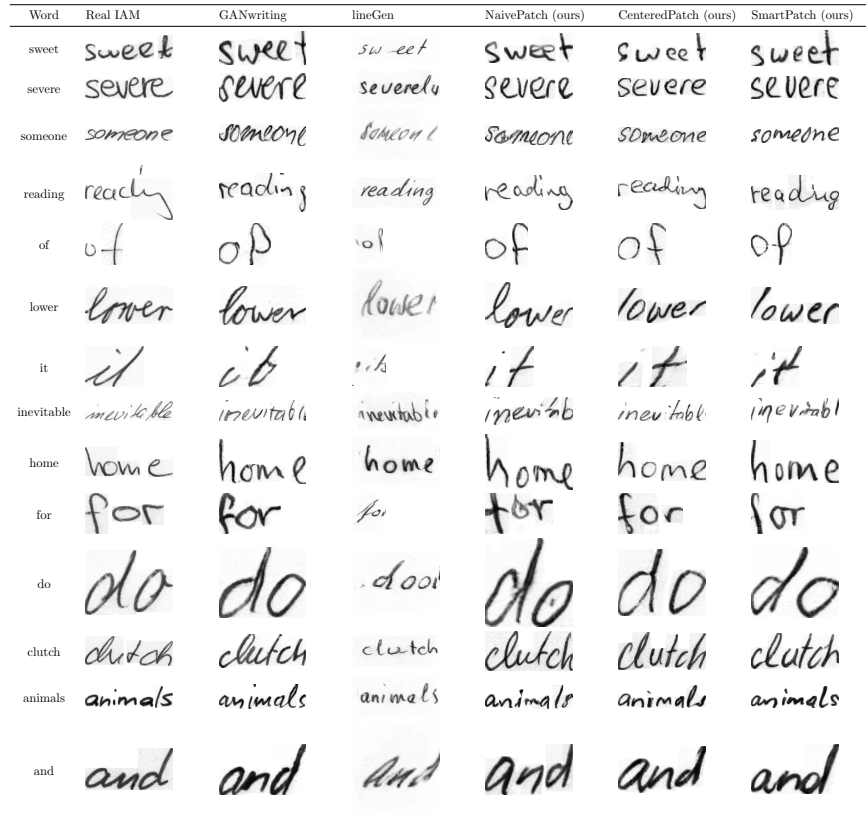 Word Real IAM GANwriting lineGen NaivePatch (ours) CenteredPatch (ours) SmartPatch (ours)
sweet sweet sweet sw eet sweet sweet sweet
severe severe severe severely severe severe severe
someone someone someone someone someone someone someone
reading reading reading reading reading reading reading
of of of of of of of
lower lower lower lower lower lower lower
it it it it it it it
inevitable inevitable inevitabl inevitabl inevitab inevitabl inevitabl
home home home home home home home
for for for for for for for
do do do dood do do do
clutch clutch clutch clutch clutch clutch clutch
animals animals animals animals animals animals animals
and and and and and and and